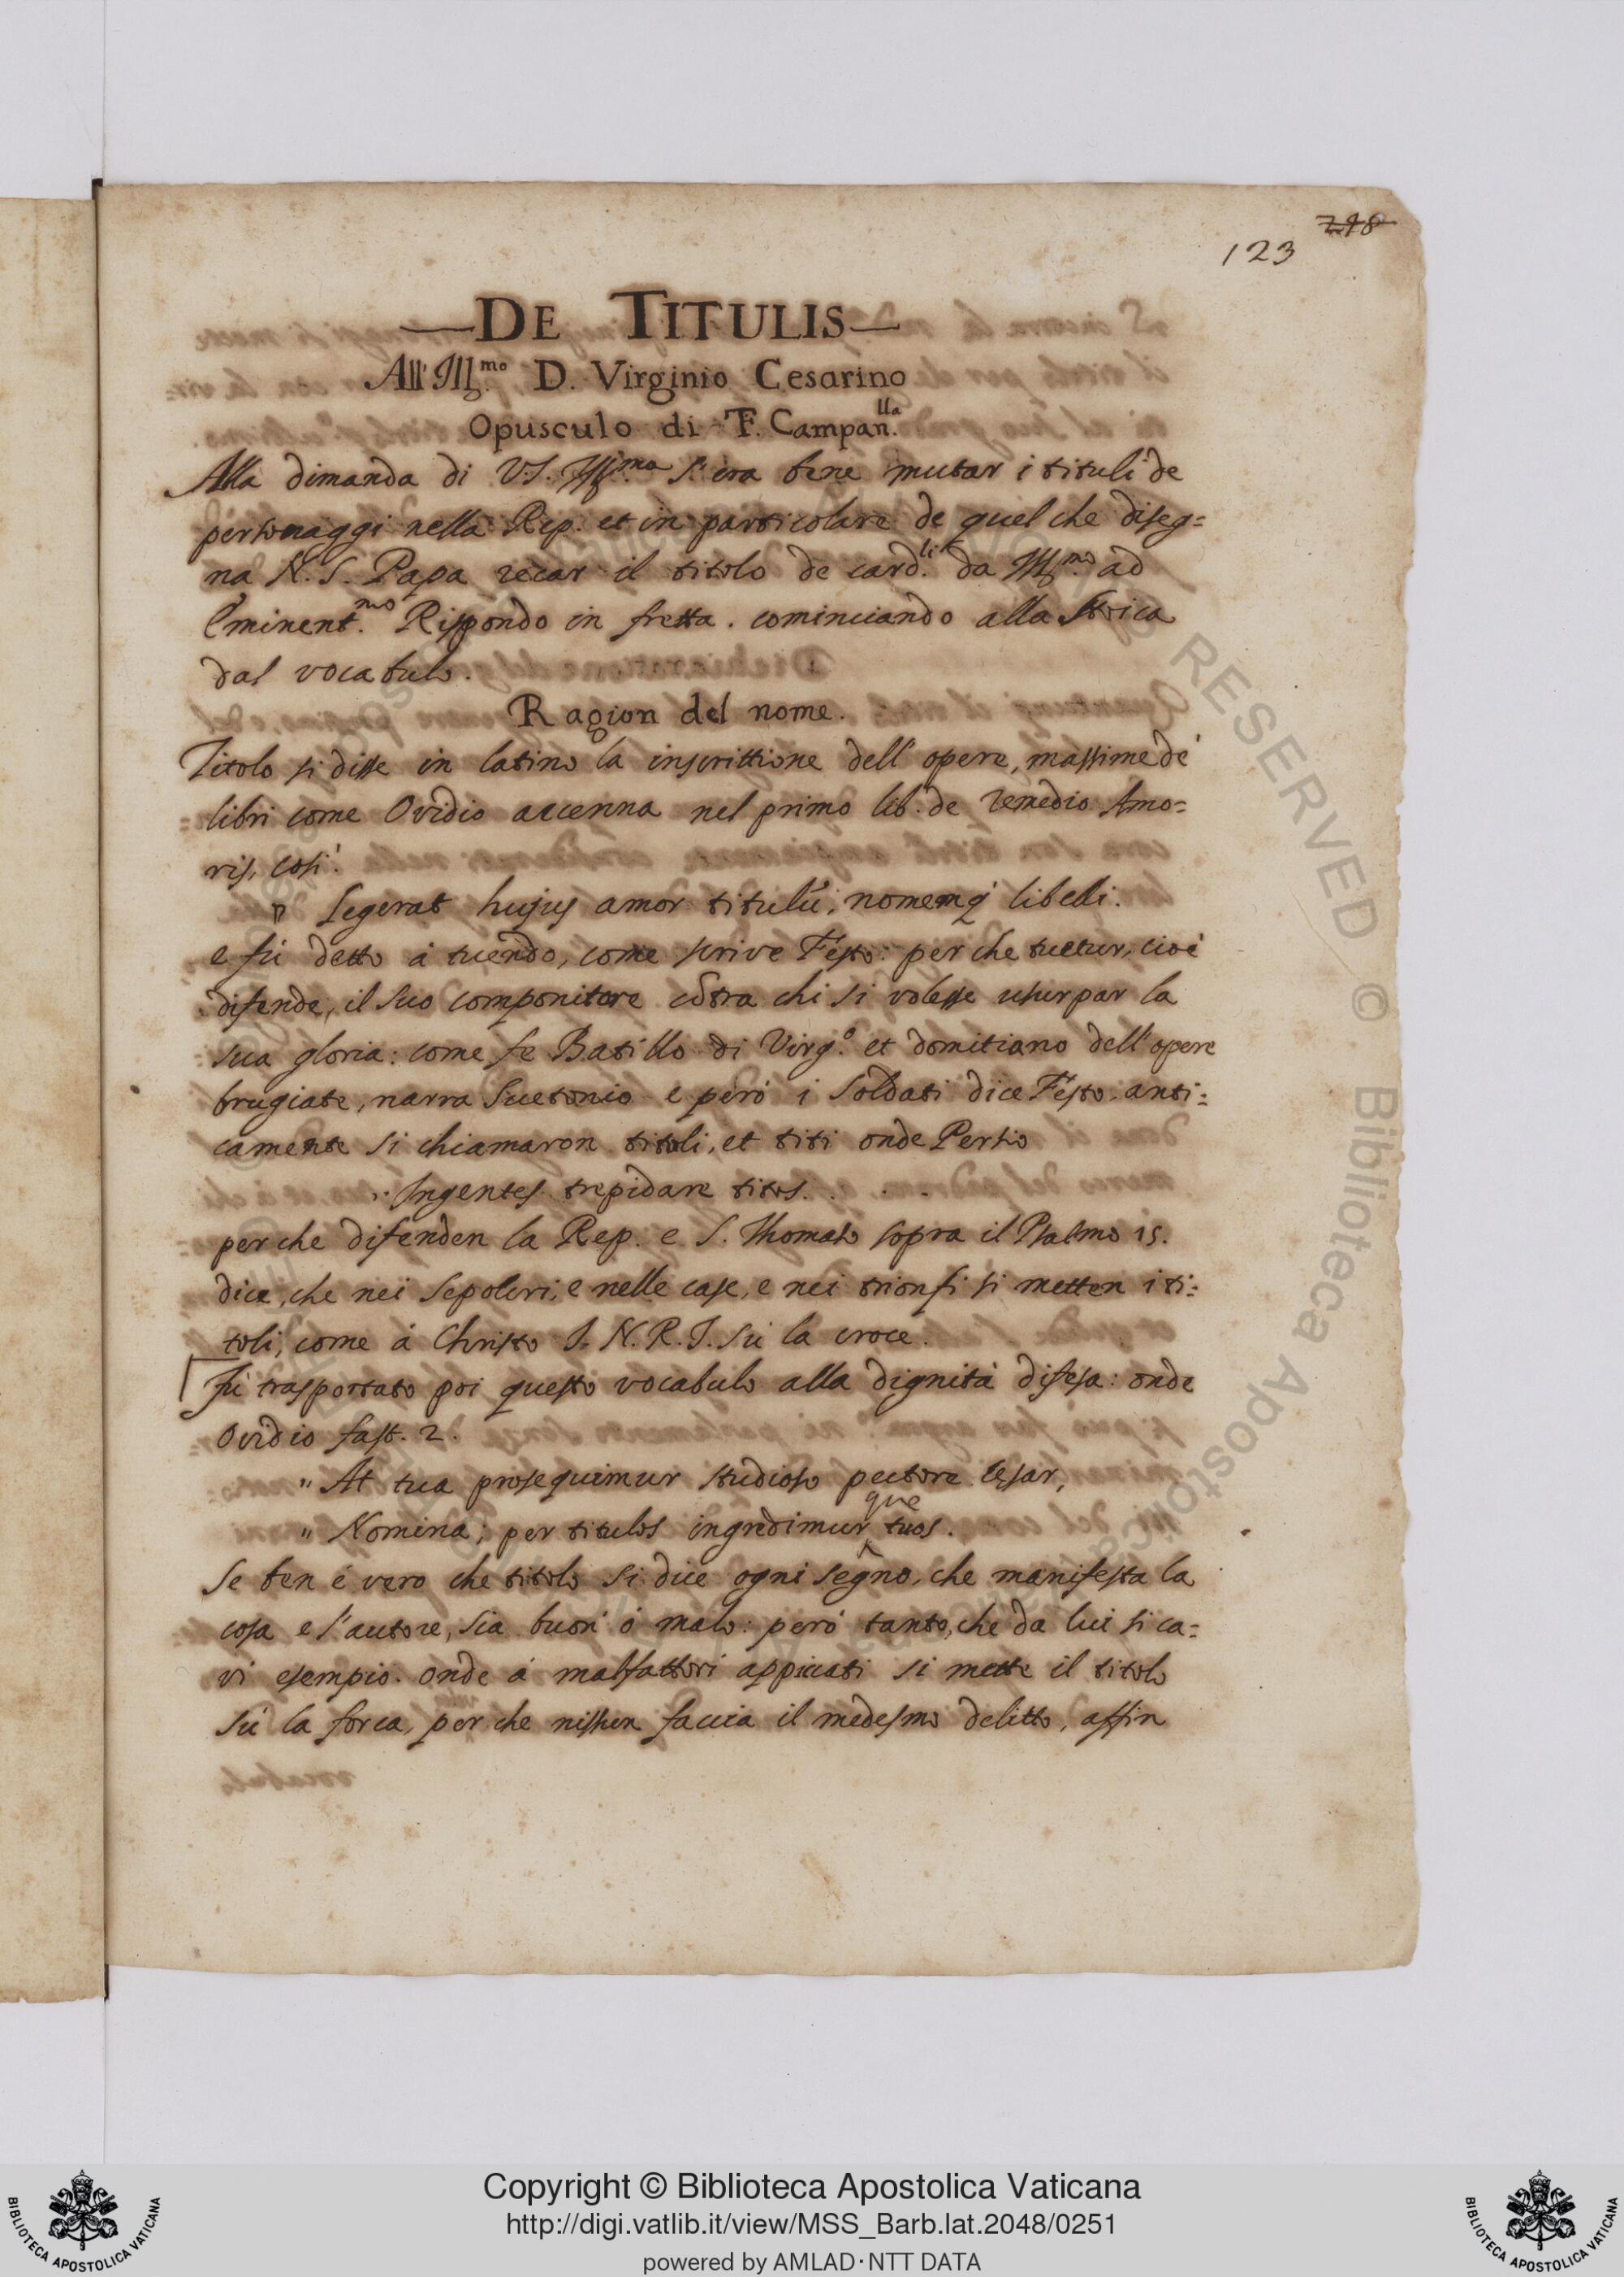 248
123
—DE TITULIS—
All' Ill.mo D. Virginio Cesarino
Opusculo di F. Campan.lla
Alla dimanda di V.S. Ill.ma s'era bene mutar i tituli de
personaggi nella Rep. et in particolare de quel che diseg=
na N. S. Papa recar il titolo de card.li da Ill.mo ad
Eminent.mo Rispondo in fretta. cominciando alla Stoica
dal vocabulo.
Ragion del nome.
Titolo si disse in latino la inscrittione dell' opere, massime de'
libri come Ovidio accenna nel primo lib. de remedio Amo=
ris, cosi'.
" Legerat hujus amor titulũ, nomemq́ libelli.
e fù detto à tuendo, come scrive Festo: perche tuetur, cioè
difende, il suo componitore cõtra chi si volesse usurpar la
sua gloria: come fe Batillo di Virg.o et domitiano dell' opere
brugiate, narra Suetonio e però i soldati dice Festo. anti=
camente si chiamaron titoli, et titi onde Persio
" Ingentes trepidare titos. . . .
perche difenden la Rep. e S. Thomaso sopra il Psalmo 15.
dice, che nei sepolcri, e nelle case, e nei trionfi si metten i ti=
toli, come à Christo I. N. R. I. sù la croce.
Fù trasportato poi questo vocabulo alla dignità difesa: onde
Ovidio fast. 2.
" At tua prosequimur studioso pectore Cesar,
" Nomina; per titulos ingredimurque tuos.
Se ben è vero che titolo si dice ogni segno, che manifesta la
cosa e l'autore, sia buon' ò malo: però tanto, che da lui si ca=
vi esempio. onde à malfattori appiccati si mette il titolo
sù la forca, perche nissun faccia il medesmo delitto, affin
RESERVED © Biblioteca Apostolica
Copyright © Biblioteca Apostolica Vaticana
http://digi.vatlib.it/view/MSS_Barb.lat.2048/0251
powered by AMLAD·NTT DATA
BIBLIOTECA APOSTOLICA VATICANA
BIBLIOTECA APOSTOLICA VATICANA